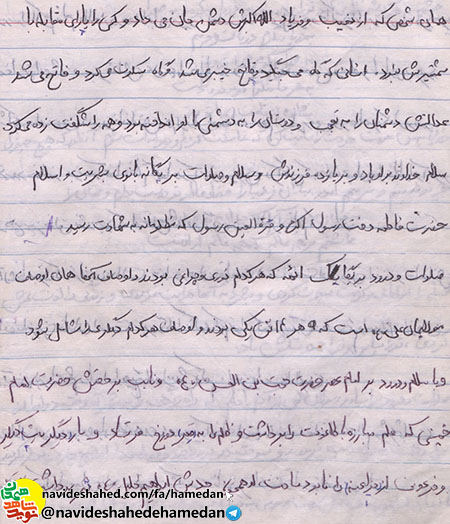 همان شخصی که از نهیب و فریاد الله اکبرش دشمن جان می داد و کسی را یارای مقابله با
شمشیرش نبود. انسانی که گاه می جنگید و فاتح خیبر می شد گاه سکوت می کرد و فاتح می شد
عدالتش دشمنان را به تعجب و دوستان را به دشمنی با او انداخته بود و همه را شگفت زده می کرد
سلام خداوند بر او باد و بر یازده فرزندش و سلام و صلوات بر یگانه بانوی بشریت و اسلام
حضرت فاطمه دخت رسول اکرم و قرة العین رسول که مظلومانه به شهادت رسید
صلوات و درود بر یکایک ائمه که هر کدام نوری و چراغی بودند و اوصاف آنها همان اوصاف
مولایمان علی است که هر یکی بودند و اوصاف هر کدام دیگری را شامل شود
و با سلام و درود بر امام عصر حضرت حجت بن الحسن و نائب بر حقش حضرت امام
خمینی که علم مبارزه با طاغوت را برداشت و ظلم را به دوزخ فرستاد و بار دیگر بت دیگر
و فرعون را نابود ساخت ابراهیم خلیل
navideshahed.com/fa/hamedan
@navideshahedehamedan